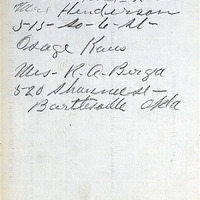 Mrs Henderson
515- So- 6- St-
Osage Kans
Mrs- R. A. Berga
520 Shawnee St-
Bartlesville Okla